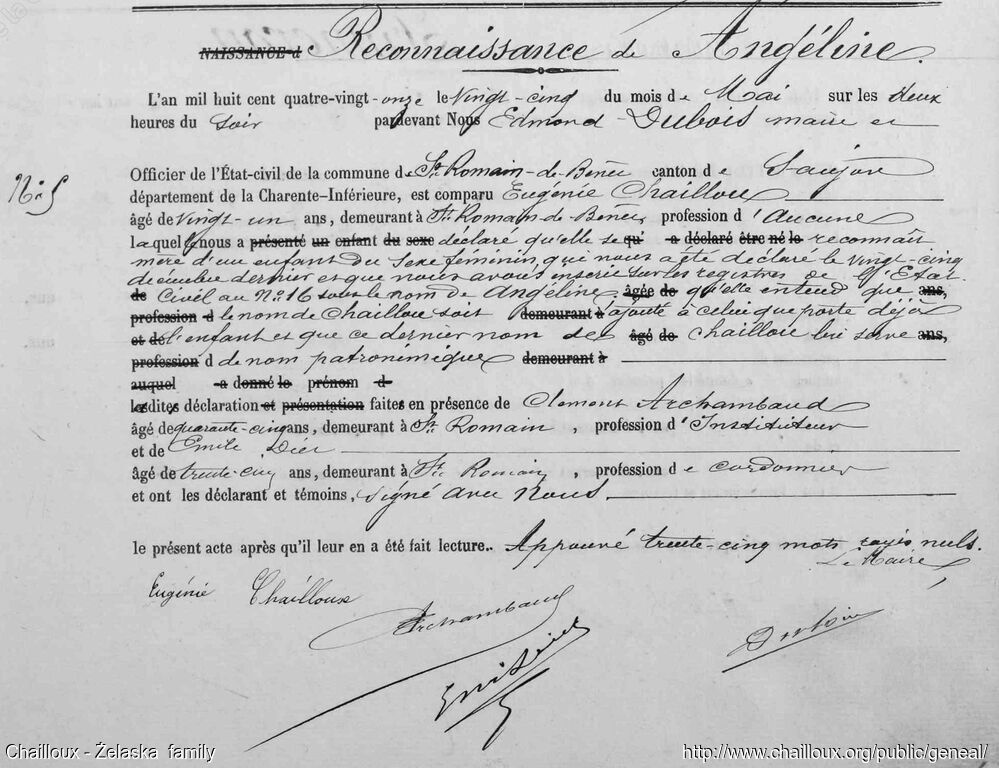 NAISSANCE d e Reconnaissance de Angéline.
L'an mil huit cent quatre-vingt-onze le Vingt-cinq du mois de Mai sur les deux
heures du Soir pardevant Nous Edmond Dubois maire et
Officier de l'État-civil de la commune de St Romain-de-Benêt canton de Saujon
N: 5
département de la Charente-Inférieure, est comparu Eugénie Chailloux
âgé de Vingt-un ans, demeurant à St Romain-de-Benêt, profession d'Aucune
laquelle nous a présenté un enfant du sexe déclaré qu'elle se qu' a déclaré être né le reconnaît
mère d'un enfant du sexe féminin, que nous a été déclaré le vingt-cinq
décembre dernier et que nous avons inscrit sur les registres de l'Etat
de Civil au N:16 sous le nom de Angéline. âgée de qu'elle entend que ans,
profession d le nom de Chailloux soit demeurant à ajouté à celui que porte déjà
et de l'enfant et que ce dernier nom de âgé de Chailloux lui serve ans,
profession d de nom patronimique demeurant à
auquel a donné le prénom d
lesdites déclaration et présentation faites en présence de Clément Archambaud
âgé de quarante-cinq ans, demeurant à St Romain, profession d'Instituteur
et de Emile Dier
âgé de trente-cinq ans, demeurant à St Romain, profession de cordonnier
et ont les déclarant et témoins, signé avec Nous
le présent acte après qu'il leur en a été fait lecture. Approuvé trente-cinq mots rayés nuls.
Le Maire,
Eugénie Chailloux
Archambaud
Dubois
Chailloux - Żelaska family
http://www.chailloux.org/public/geneal/